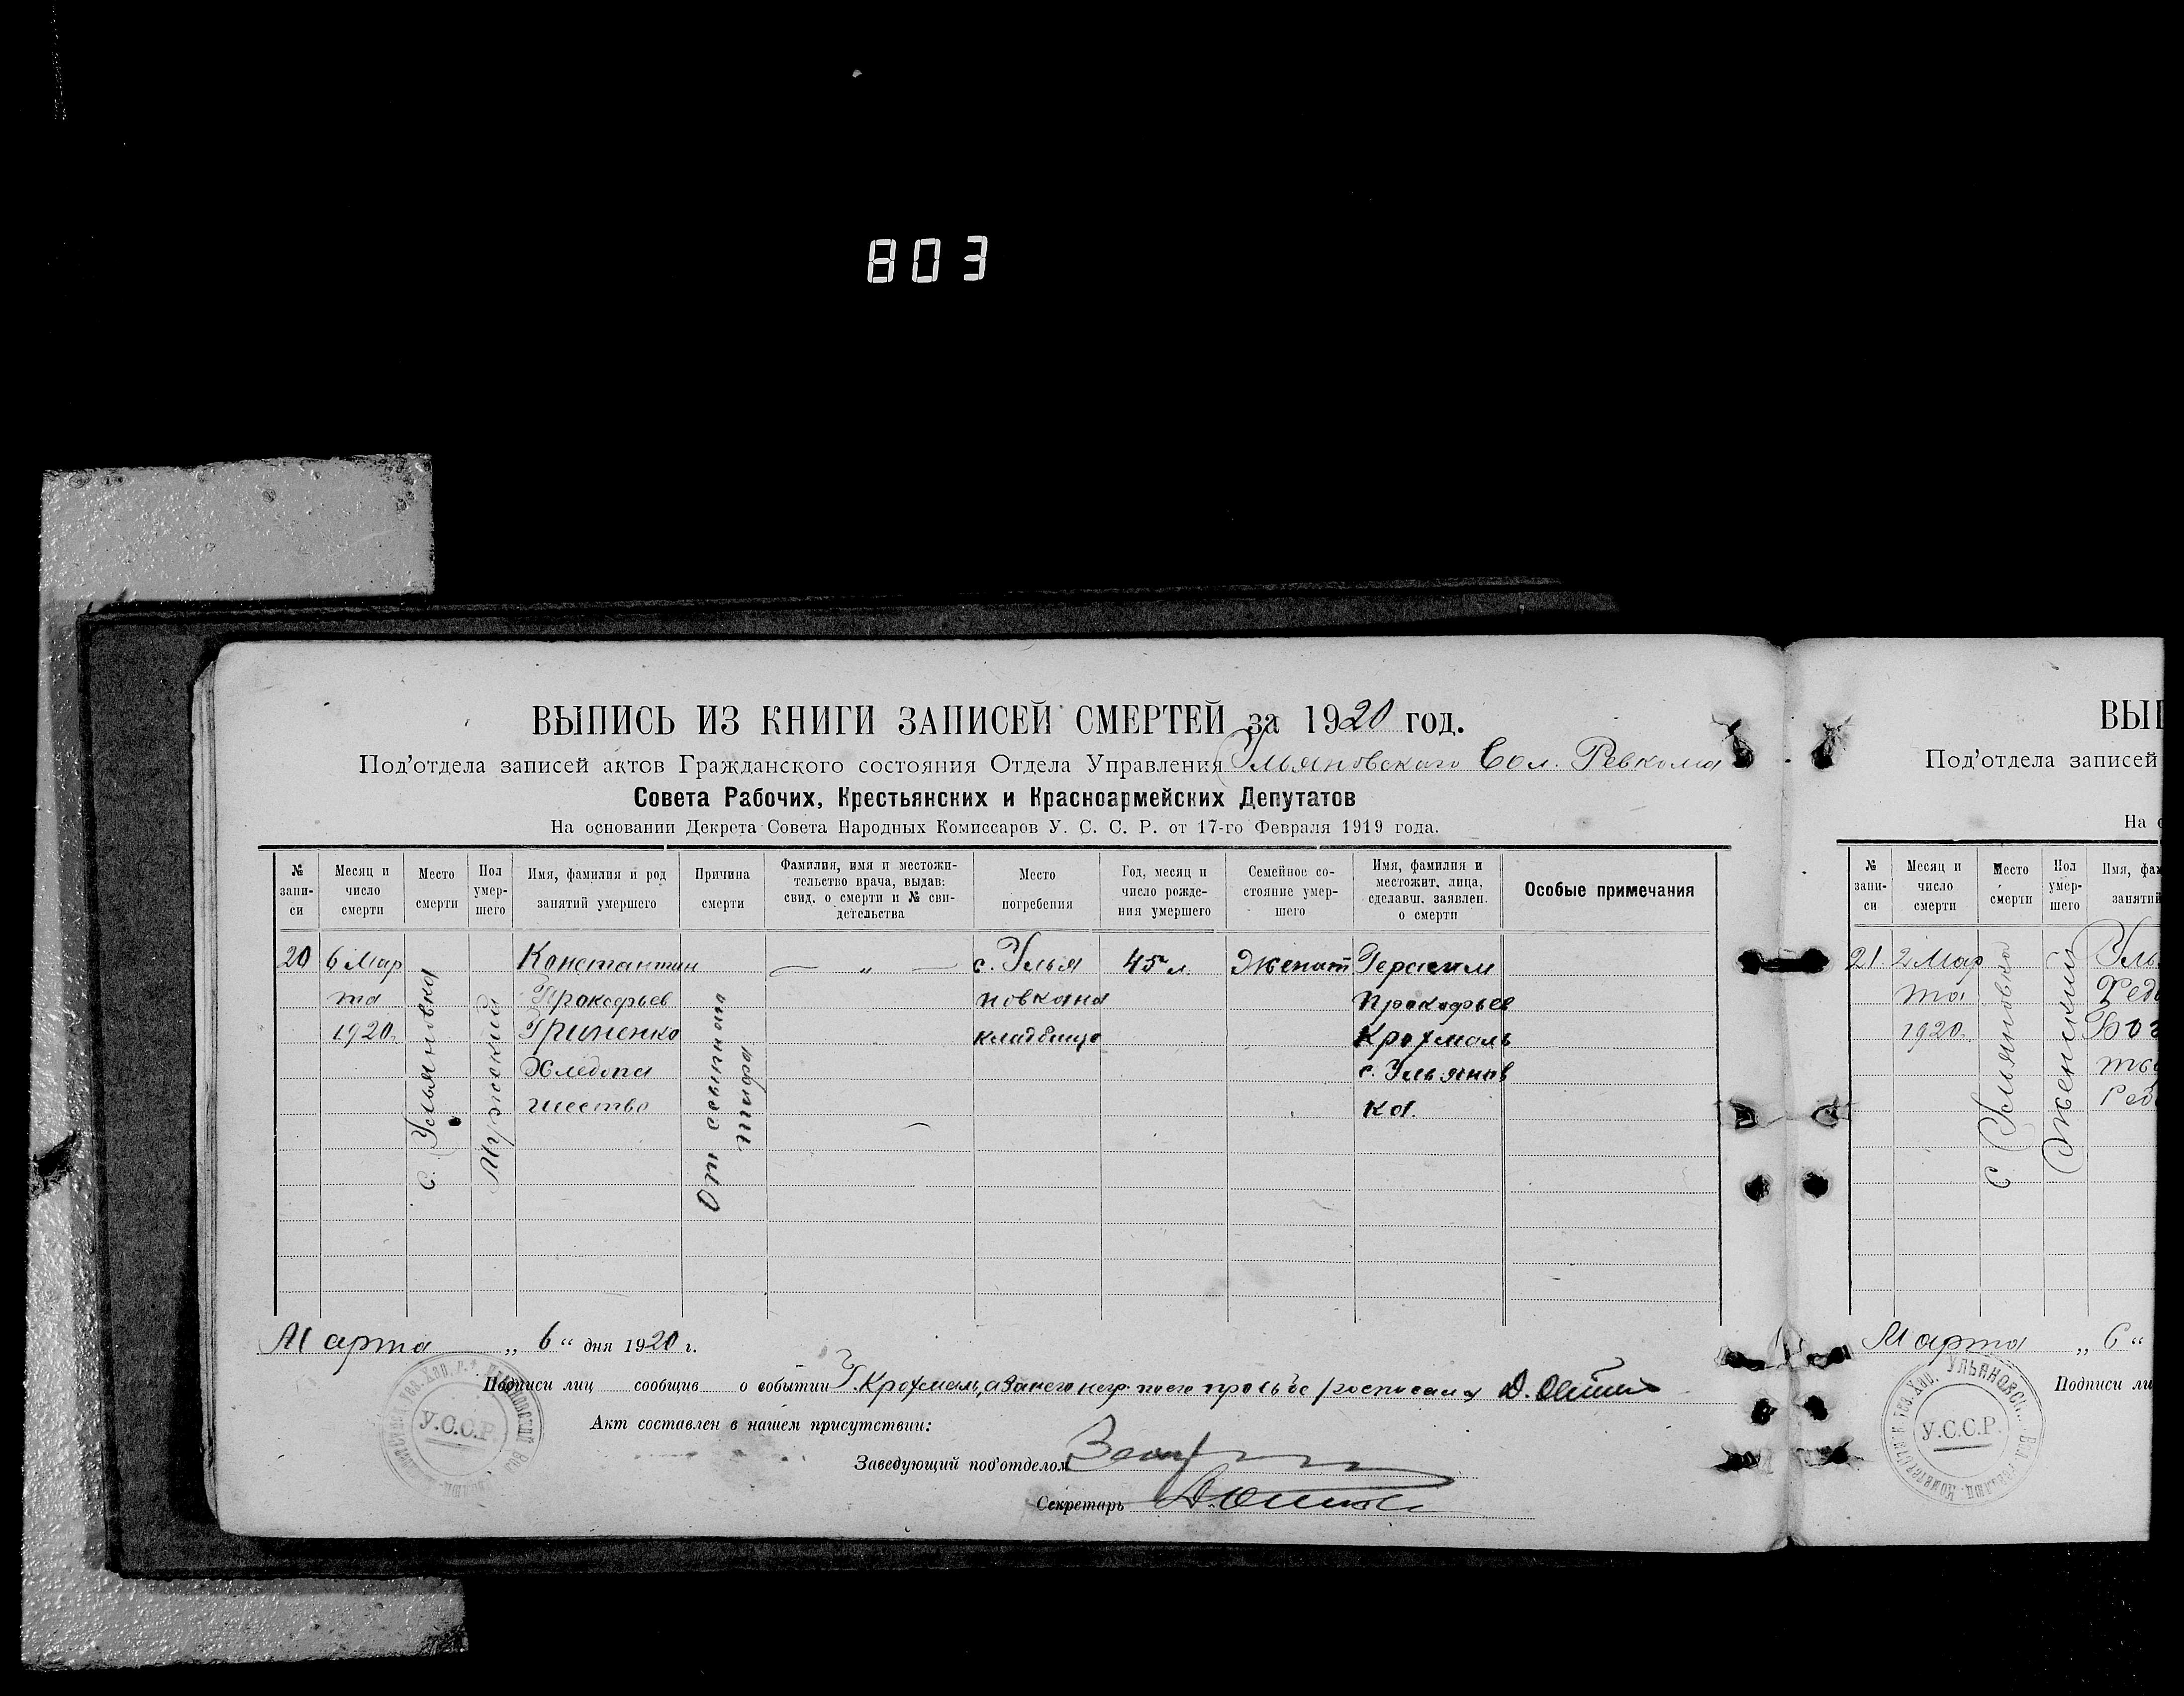 803
ВЫПИСЬ ИЗ КНИГИ ЗАПИСЕЙ СМЕРТЕЙ за 1920 год.
Под'отдела записей актов Гражданского состояния Отдела Управления Ульяновского Вол. Ревкома
Совета Рабочих, Крестьянских и Красноармейских Депутатов
На основании Декрета Совета Народных Комиссаров У. С. С. Р. от 17-го Февраля 1919 года.
№ запи-си
Месяц и число смерти
Место смерти
Пол умер-шего
Имя, фамилия и род занятий умершего
Причина смерти
Фамилия, имя и местожи-тельство врача, выдав: свид. о смерти и № сви-детельства
Место погребения
Год, месяц и число рожде-ния умершего
Семейное со-стояние умер-шего
Имя, фамилия и местожит. лица, сделавш. заявлен. о смерти
Особые примечания
20
6 Мар
та
1920
с. Ульяновка
Мужеский
Константин
Прокофьев
Гриненко
Хлебопа
шество
От сыпная
тифа
— „ —
с. Улья
новка на
кладбище
45 л
Женат
Герасим
Прокофьев
Крохмаль
с. Ульянов
ка.
Марта „ 6 “ дня 1920 г.
Подписи лиц сообщив о событии Г. Крохмаль, а за него негр. по его просьбе росписался
Акт составлен в нашем присутствии:
Заведующий под'отделом
Секретарь
У.С.С.Р.
ВЫП
Под'отдела записей
На о
№ запи-си
Месяц и число смерти
Место смерти
Пол умер-шего
Имя, фа
занятий
21
2 Мар
та
1920
с Ульяновка
Женский
Уль
Федо
Марта „ 6 “
Подписи ли
Ульяновск. Вол.
У.С.С.Р.